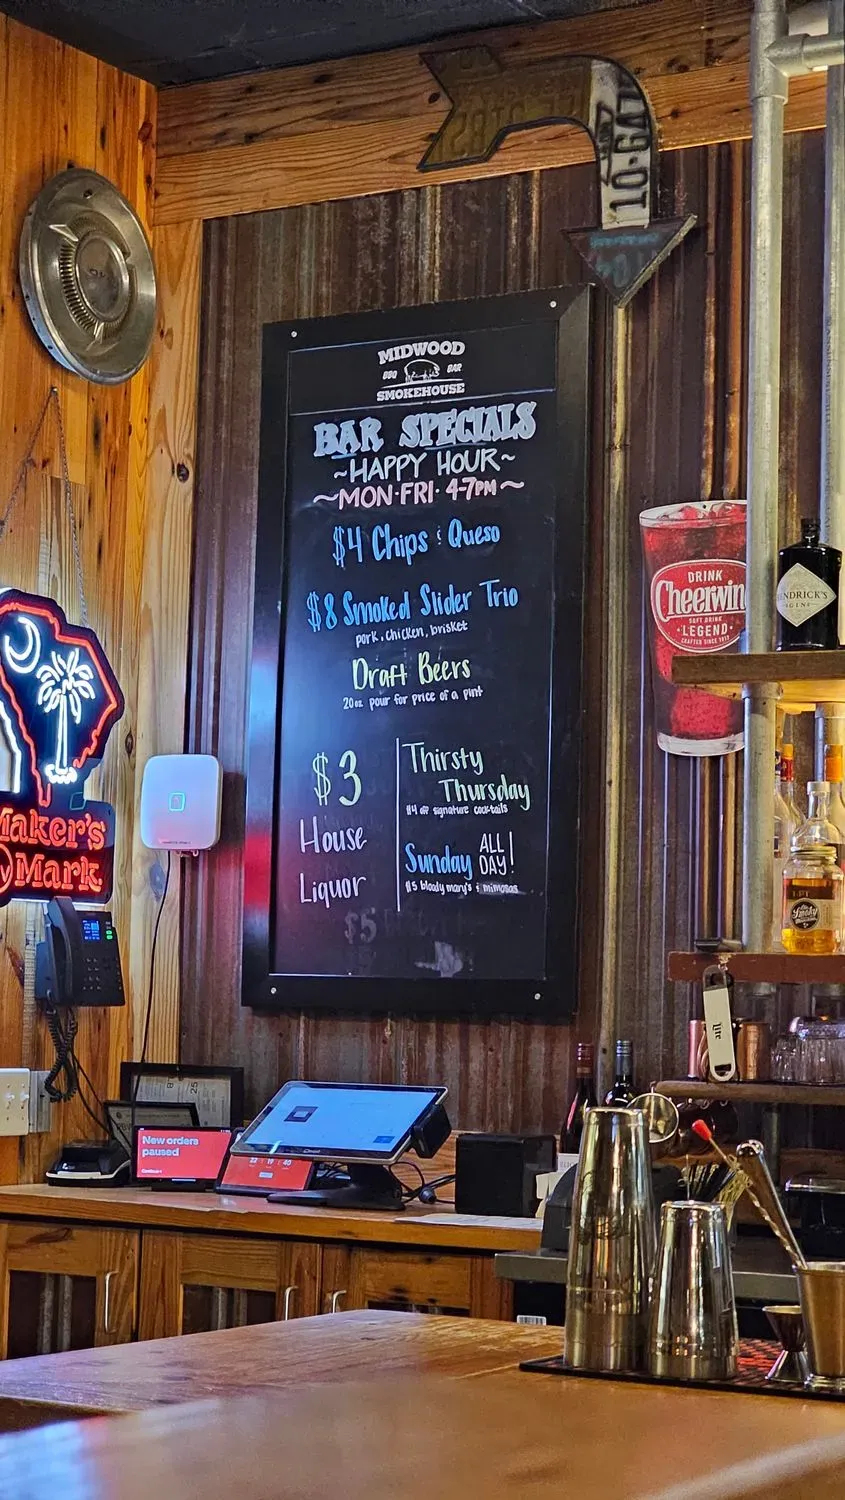 10·GAT
MIDWOOD
BBQ BAR
SMOKEHOUSE
BAR SPECIALS
~HAPPY HOUR~
~MON·FRI· 4-7PM~
$4 Chips & Queso
$8 Smoked Slider Trio
pork, chicken, brisket
Draft Beers
20oz pour for price of a pint
$3
House
Liquor
Thirsty
Thursday
$4 off signature cocktails
Sunday ALL DAY!
$5 bloody mary's & mimosas
$5
DRINK
Cheerwin
SOFT DRINK
·LEGEND·
CRAFTED SINCE 1917
HENDRICK'S
GIN
Maker's
Mark
Smoky
Lite
New orders
paused
22 : 19 : 40